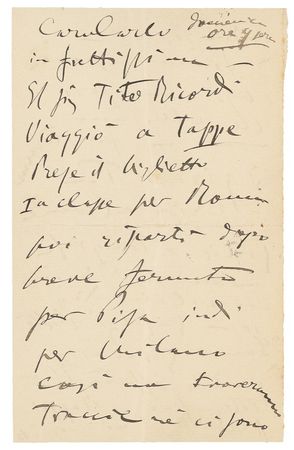 Caro Carlo
ore 9 pom
in frettissima —
Il Sig Tito Ricordi
viaggiò a Tappe
Prese il biglietto
Ia classe per Roma
poi ripartì dopo
breve fermata
per Pisa indi
per Milano
così non troveranno
traccie nè ci sono